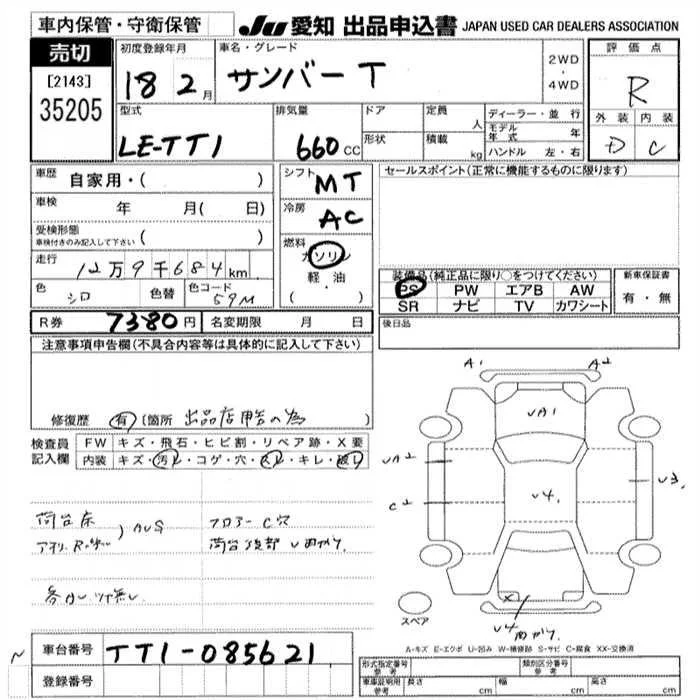 車内保管・守衛保管
JU 愛知 出品申込書 JAPAN USED CAR DEALERS ASSOCIATION
売切
[2143]
35205
初度登録年月
18 2月
車名・グレード
サンバー T
2WD
・
4WD
評価点
R
外装 内装
D C
型式
LE-TT1
排気量
660cc
ドア
形状
定員 人
積載 kg
ディーラー・並行
モデル年式 年
ハンドル 左・右
車歴 自家用・( )
車検 年 月( 日)
受検形態
車検付きのみ記入して下さい ( )
走行
12万9千684km
色 シロ 色替 色コード 59M
シフト MT
冷房 AC
燃料
ガソリン
・
軽油
・
( )
セールスポイント(正常に機能するものに限ります)
装備品(純正品に限り○をつけてください)
PS PW エアB AW
SR ナビ TV カワシート
新車保証書
有・無
R券 7380円 名変期限 月 日
後日品
注意事項申告欄(不具合内容等は具体的に記入して下さい)
修復歴 有 [箇所 出品店申告の為
検査員記入欄
FW キズ・飛石・ヒビ割・リペア跡・X要
内装 キズ・汚レ・コゲ・穴・スレ・キレ・破レ
荷台床
フロアーC穴
各カシツ無し
A1 A2
UA1
UA2
C2
U4.
U3
X
U4
スペア
A-キズ E-エクボ U-凹み W-補修跡 S-サビ C-腐食 XX-交換済
車台番号 TT1-085621
登録番号
形式指定番号 参考
類別区分番号 参考
車庫証明用 参考 長さ cm 幅 cm 高さ cm